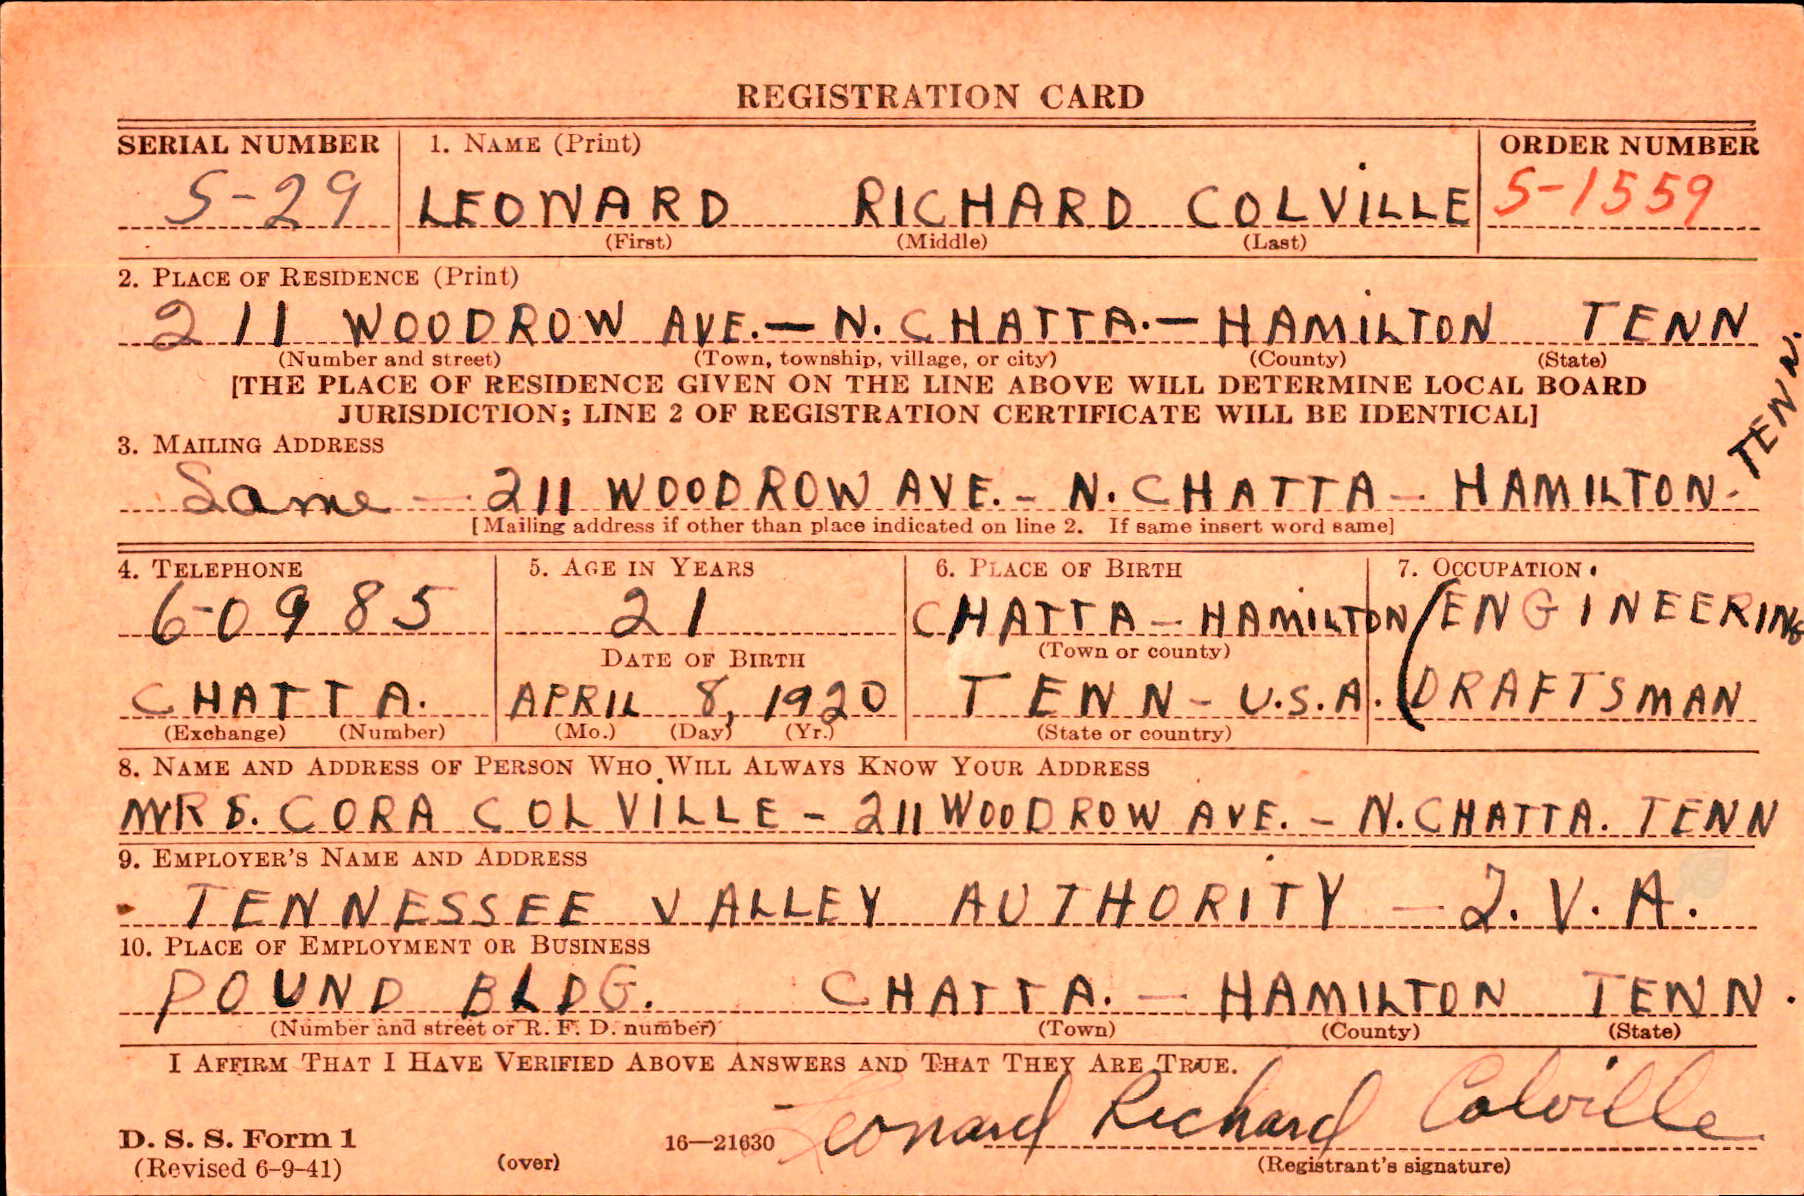 REGISTRATION CARD
SERIAL NUMBER 1. NAME (Print) ORDER NUMBER
S-29 LEONARD RICHARD COLVILLE S-1559
(First) (Middle) (Last)
2. PLACE OF RESIDENCE (Print)
211 WOODROW AVE. — N. CHATTA. — HAMILTON TENN
(Number and street) (Town, township, village, or city) (County) (State)
[THE PLACE OF RESIDENCE GIVEN ON THE LINE ABOVE WILL DETERMINE LOCAL BOARD
JURISDICTION; LINE 2 OF REGISTRATION CERTIFICATE WILL BE IDENTICAL]
3. MAILING ADDRESS
Same — 211 WOODROW AVE. - N. CHATTA - HAMILTON - TENN.
[Mailing address if other than place indicated on line 2. If same insert word same]
4. TELEPHONE 5. AGE IN YEARS 6. PLACE OF BIRTH 7. OCCUPATION
6-0985 21 CHATTA - HAMILTON (ENGINEERING
DATE OF BIRTH (Town or county)
CHATTA. APRIL 8, 1920 TENN - U.S.A. (DRAFTSMAN
(Exchange) (Number) (Mo.) (Day) (Yr.) (State or country)
8. NAME AND ADDRESS OF PERSON WHO WILL ALWAYS KNOW YOUR ADDRESS
MRS. CORA COLVILLE - 211 WOODROW AVE. - N. CHATTA. TENN
9. EMPLOYER'S NAME AND ADDRESS
TENNESSEE VALLEY AUTHORITY — T.V.A.
10. PLACE OF EMPLOYMENT OR BUSINESS
POUND BLDG. CHATTA. — HAMILTON TENN.
(Number and street or R. F. D. number) (Town) (County) (State)
I AFFIRM THAT I HAVE VERIFIED ABOVE ANSWERS AND THAT THEY ARE TRUE.
Leonard Richard Colville
D. S. S. Form 1 16—21630
(Revised 6-9-41) (over) (Registrant's signature)